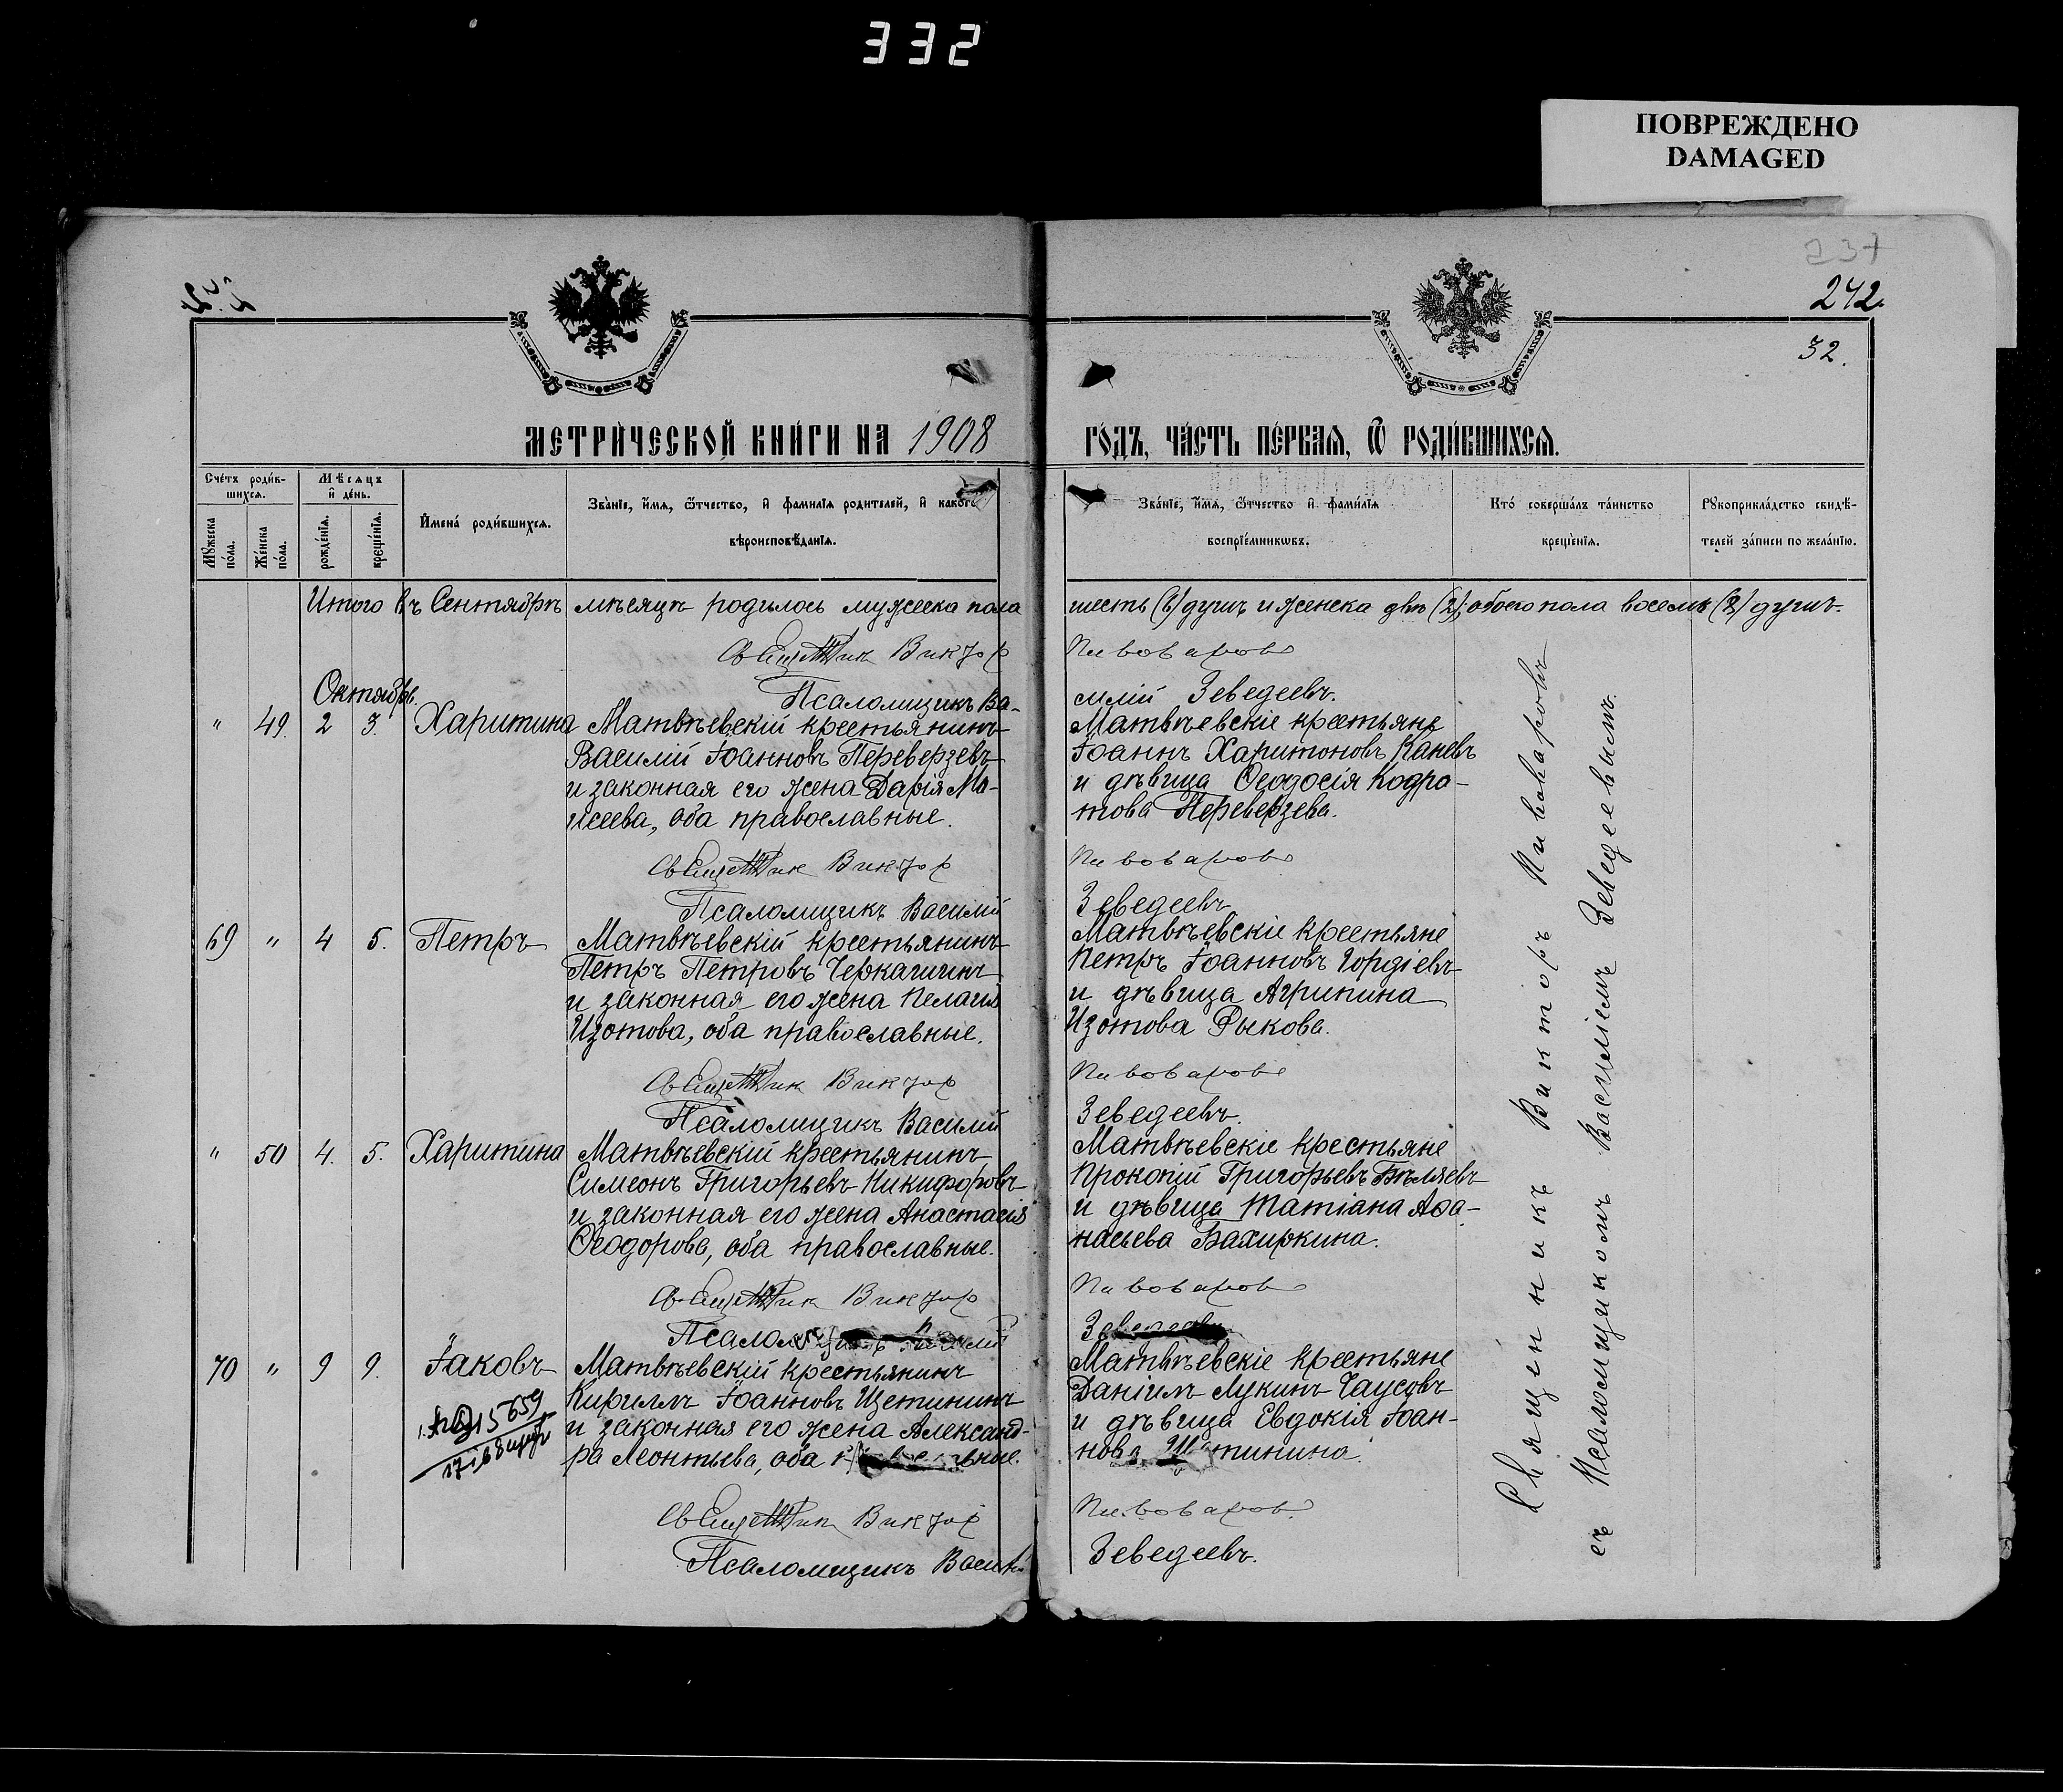 332
ПОВРЕЖДЕНО
DAMAGED
237
242.
32.
МЕТРИЧЕСКОЙ КНИГИ НА 1908
ГОДЪ, ЧАСТЬ ПЕРВАЯ, Ѿ РОДИВШИХСЯ.
Счетъ родив-
шихся.
Мужеска
пола.
Женска
пола.
Мѣсяцъ
и день.
рожденія.
крещенія.
Имена родившихся.
Званіе, имя, ѿчество, и фамилія родителей, и какого
вѣроисповѣданія.
Званіе, имя, ѿчество и фамилія
воспріемниковъ.
Кто совершалъ таинство
крещенія.
Рукоприкладство свидѣ-
телей записи по желанію.
Итого въ Сентябрѣ мѣсяцѣ родилось мужеска пола
шесть (6) душъ и женска двѣ (2); обоего пола восемь (8) душъ.
Священникъ Викторъ
Пивоваровъ
Октябрь.
Псаломщикъ Ва-
силій Зеведеевъ.
" 49. 2 3. Харитина
Матвѣевскій крестьянинъ
Василій Іоанновъ Переверзевъ
и законная его жена Дарія Мо-
исеева, оба православные.
Матвѣевскіе крестьяне
Іоаннъ Харитоновъ Каневъ
и дѣвица Ѳеодосія Кодра-
това Переверзева.
Священникъ Викторъ
Пивоваровъ
Псаломщикъ Василій
Зеведеевъ
69 " 4 5. Петръ
Матвѣевскій крестьянинъ
Петръ Петровъ Черкашинъ
и законная его жена Пелагія
Изотова, оба православные.
Матвѣевскіе крестьяне
Петръ Іоанновъ Гордіевъ
и дѣвица Агрипина
Изотова Рыкова.
Священникъ Викторъ
Пивоваровъ
Псаломщикъ Василій
Зеведеевъ.
" 50 4. 5. Харитина
Матвѣевскій крестьянинъ
Симеонъ Григорьевъ Никифоровъ
и законная его жена Анастасія
Ѳеодорова, оба православные.
Матвѣевскіе крестьяне
Прокопій Григорьевъ Бѣляевъ
и дѣвица Татіана Аѳа-
насьева Бахиркина.
Священникъ Викторъ
Пивоваровъ
Псаломщикъ Василій
Зеведеевъ
70 " 9 9. Іаковъ
15659
Матвѣевскій крестьянинъ
Кириллъ Іоанновъ Щетининъ
и законная его жена Александ-
ра Леонтьева, оба православные.
Матвѣевскіе крестьяне
Даніилъ Лукинъ Чаусовъ
и дѣвица Евдокія Іоан-
нова Щетинина.
Священникъ Викторъ
Пивоваровъ
Псаломщикъ Василій
Зеведеевъ.
Священникъ Викторъ Пивоваровъ
съ Псаломщикомъ Василіемъ Зеведеевымъ.